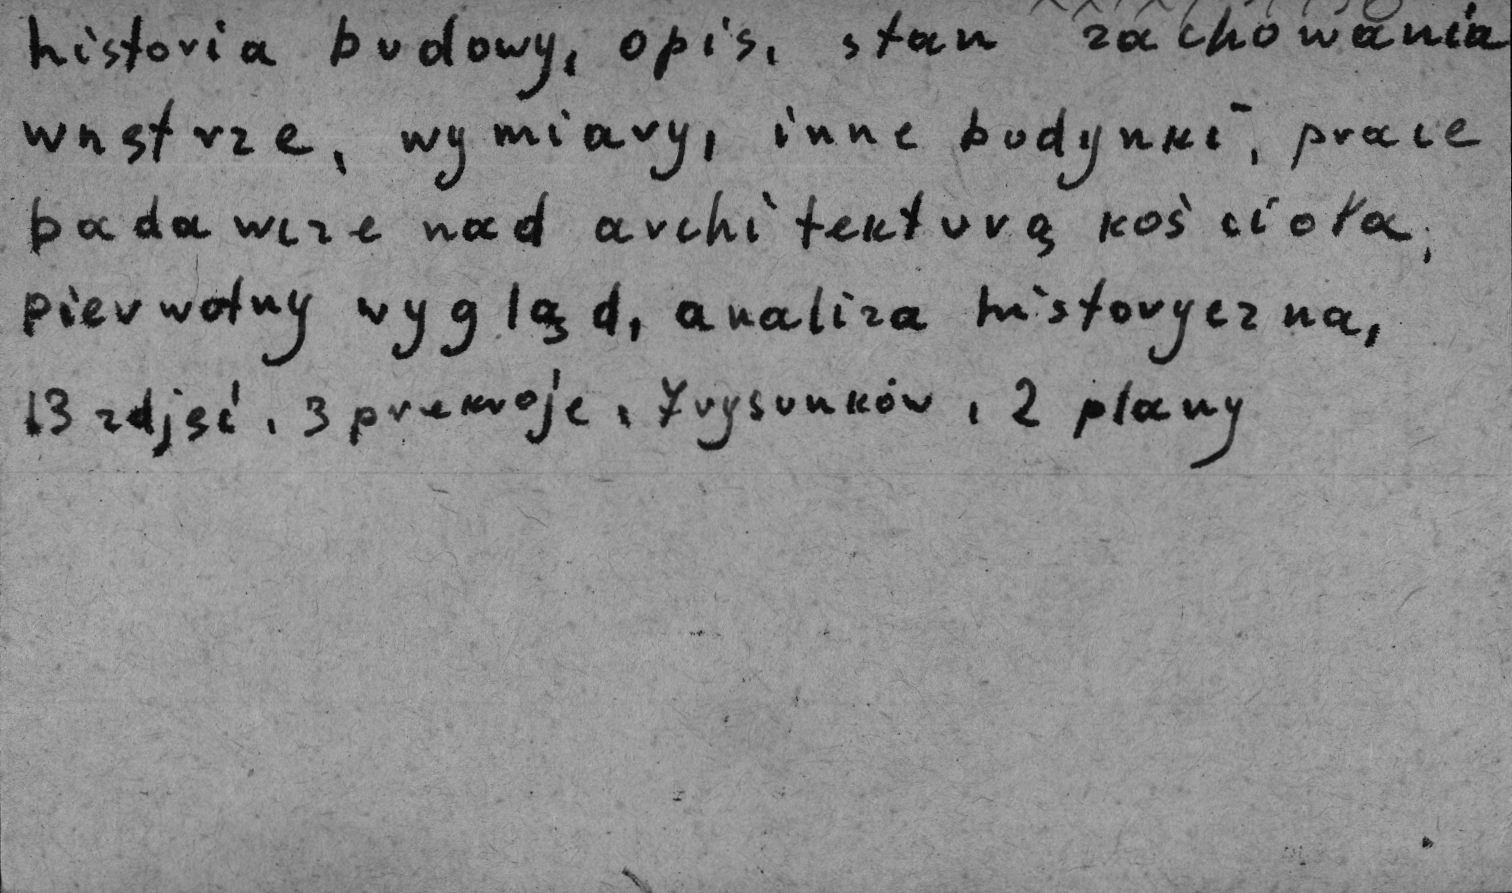 historia budowy, opis, stan zachowania
wnętrze, wymiary, inne budynki, prace
badawcze nad architekturą kościoła,
pierwotny wygląd, analiza historyczna,
13 zdjęć, 3 przekroje, 7 rysunków, 2 plany